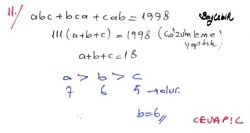 11./ abc + bca + cab = 1998
111(a+b+c) = 1998 (çözümleme yaptık)
a+b+c = 18
a > b > c
7 6 5 olur.
b=6//
CEVAP: C